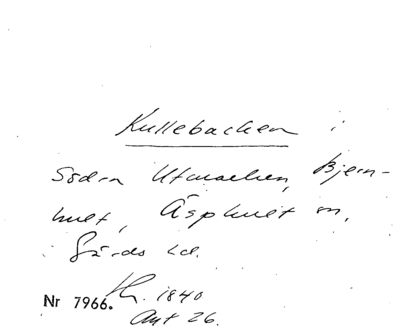 Kullebacken i
Södra Utmarken, Bjern-
hult, Äsphult sn,
Gärds hd.
Nr 7966. 1840
Akt 26.